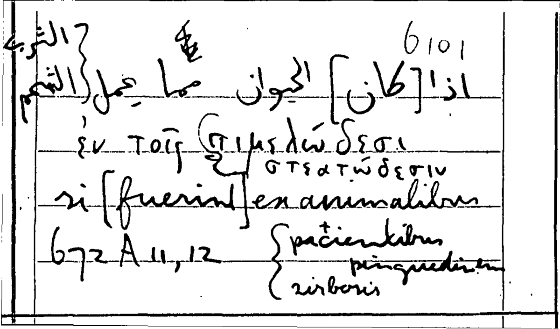 6101
اذا [كان] الحيوان مما يحمل { الشحم
الثرب
ἐν τοῖς πιμελώδεσι
στεατώδεσιν
si [fuerint] ex animalibus
672 A 11, 12 { pacientibus
pinguedinem
zirbosis